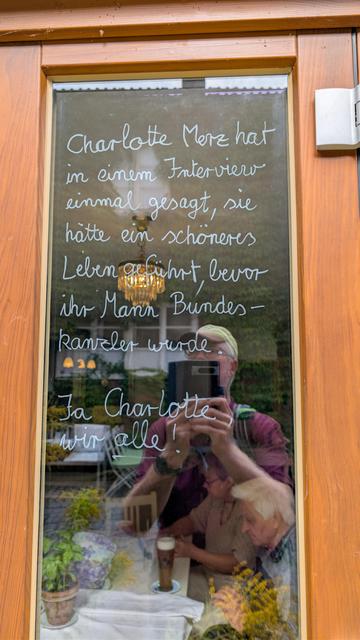 Charlotte Merz hat
in einem Interview
einmal gesagt, sie
hätte ein schöneres
Leben geführt, bevor
ihr Mann Bundes-
kanzler wurde.
Ja Charlotte,
wir alle!